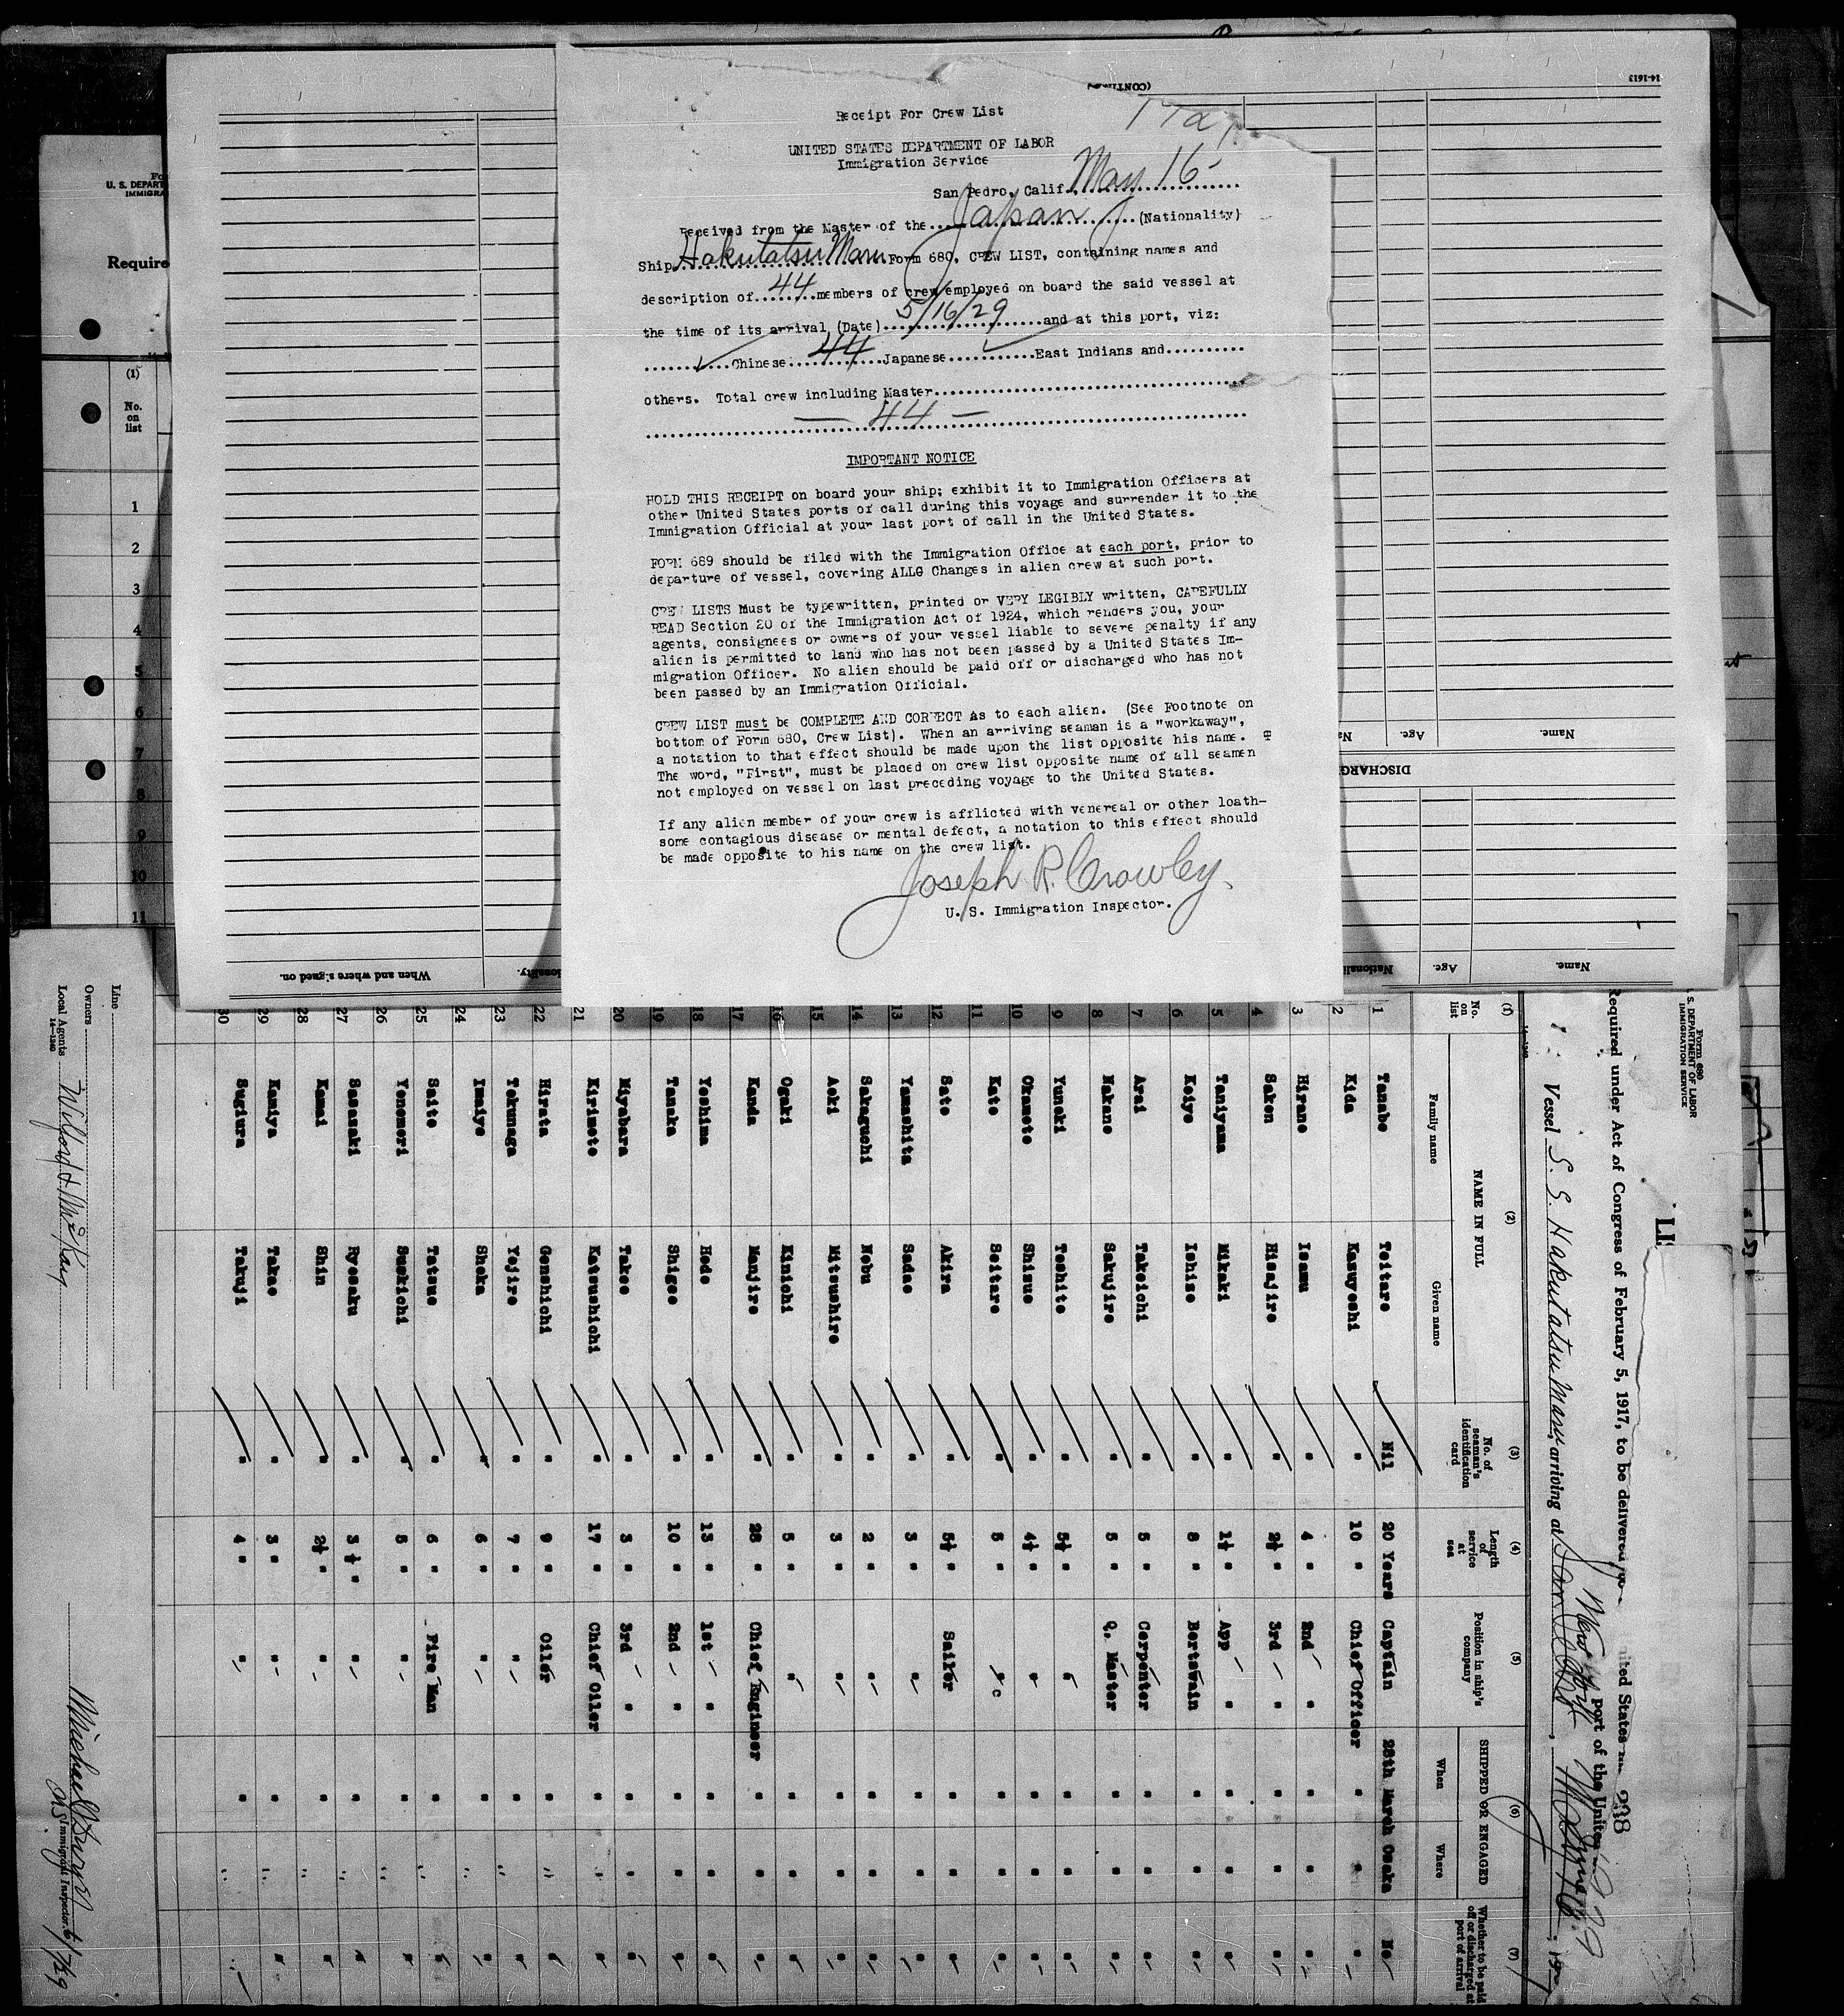 Receipt For Crew List
UNITED STATES DEPARTMENT OF LABOR
Immigration Service
San Pedro, Calif. May 16
Received from the Master of the Japan (Nationality)
Ship Hakutatsu Maru Form 680, CREW LIST, containing names and
description of 44 members of crew employed on board the said vessel at
the time of its arrival (Date) 5/16/29 and at this port, viz:
Chinese 44 Japanese East Indians and
others. Total crew including Master
— 44 —
IMPORTANT NOTICE
HOLD THIS RECEIPT on board your ship; exhibit it to Immigration Officers at
other United States ports of call during this voyage and surrender it to the
Immigration Official at your last port of call in the United States.
FORM 689 should be filed with the Immigration Office at each port, prior to
departure of vessel, covering ALLG Changes in alien crew at such port.
CREW LISTS Must be typewritten, printed or VERY LEGIBLY written, CAREFULLY
READ Section 20 of the Immigration Act of 1924, which renders you, your
agents, consignees or owners of your vessel liable to severe penalty if any
alien is permitted to land who has not been passed by a United States Im-
migration Officer. No alien should be paid off or discharged who has not
been passed by an Immigration Official.
CREW LIST must be COMPLETE AND CORRECT As to each alien. (See Footnote on
bottom of Form 680, Crew List). When an arriving seaman is a "workaway",
a notation to that effect should be made upon the list opposite his name.
The word, "First", must be placed on crew list opposite name of all seamen
not employed on vessel on last preceding voyage to the United States.
If any alien member of your crew is afflicted with venereal or other loath-
some contagious disease or mental defect, a notation to this effect should
be made opposite to his name on the crew list.
Joseph R. Crowley
U. S. Immigration Inspector.
14-1613
Name.
Age.
DISCHARG
Name.
Age.
When and where signed on.
U. S. DEPART
IMMIGRA
Require
(1)
No.
on
list
1
2
3
4
5
6
7
8
9
10
11
Form 680
U. S. DEPARTMENT OF LABOR
IMMIGRATION SERVICE
Required under Act of Congress of February 5, 1917, to be delivered
Vessel S. S. Hakutatsu Maru, arriving at
port of the United
(1) No. on list
(2) NAME IN FULL
Family name
Given name
(3) No. of seaman's identification card
(4) Length of service at sea
(5) Position in ship's company
(6) SHIPPED OR ENGAGED
When
Where
(7) Whether to be paid off or discharged at port of arrival
1 Tanabe Teitaro Nil 20 Years Captain 28th March Osaka No
2 Kida Kasuyoshi " 10 " Chief Officer " " "
3 Hirano Isamu " 4 " 2nd " " " "
4 Saken Hisajiro " 2½ " 3rd " " " "
5 Taniyama Mikaki " 1½ " App " " " "
6 Koiye Ishizo " 8 " Bortswain " " "
7 Arai Takeichi " 5 " Carpenter " " "
8 Nakano Sakujiro " 5 " Q. Master " " "
9 Yunoki Toshito " 5½ " " " " "
10 Okamoto Shizuo " 4½ " " " " "
11 Kato Seitaro " 5 " " " " "
12 Sato Akira " 5½ " Sailor " " "
13 Yamashita Sadao " 3 " " " " "
14 Sakaguchi Nobu " 2 " " " " "
15 Aoki Mitsushiro " 3 " " " " "
16 Ogaki Kinichi " 5 " " " " "
17 Kanda Manjiro " 28 " Chief Engineer " " "
18 Yoshima Hodo " 13 " 1st " " " "
19 Tanaka Shigeo " 10 " 2nd " " " "
20 Miyabara Takeo " 3 " 3rd " " " "
21 Kirimoto Katsushichi " 17 " Chief Oiler " " "
22 Hirata Genshichi " 9 " Oiler " " "
23 Tokunaga Yojiro " 7 " " " " "
24 Imaiye Shoka " 6 " " " " "
25 Saito Tatsuo " 6 " Fire Man " " "
26 Yonemori Suekichi " 5 " " " " "
27 Sasasaki Ryosaku " 3½ " " " " "
28 Kamai Shin " 2½ " " " " "
29 Kamiya Takao " 3 " " " " "
30 Sugiura Takuji " 4 " " " " "
Line
Owners
Local Agents
14-1240
Immigrant Inspector.